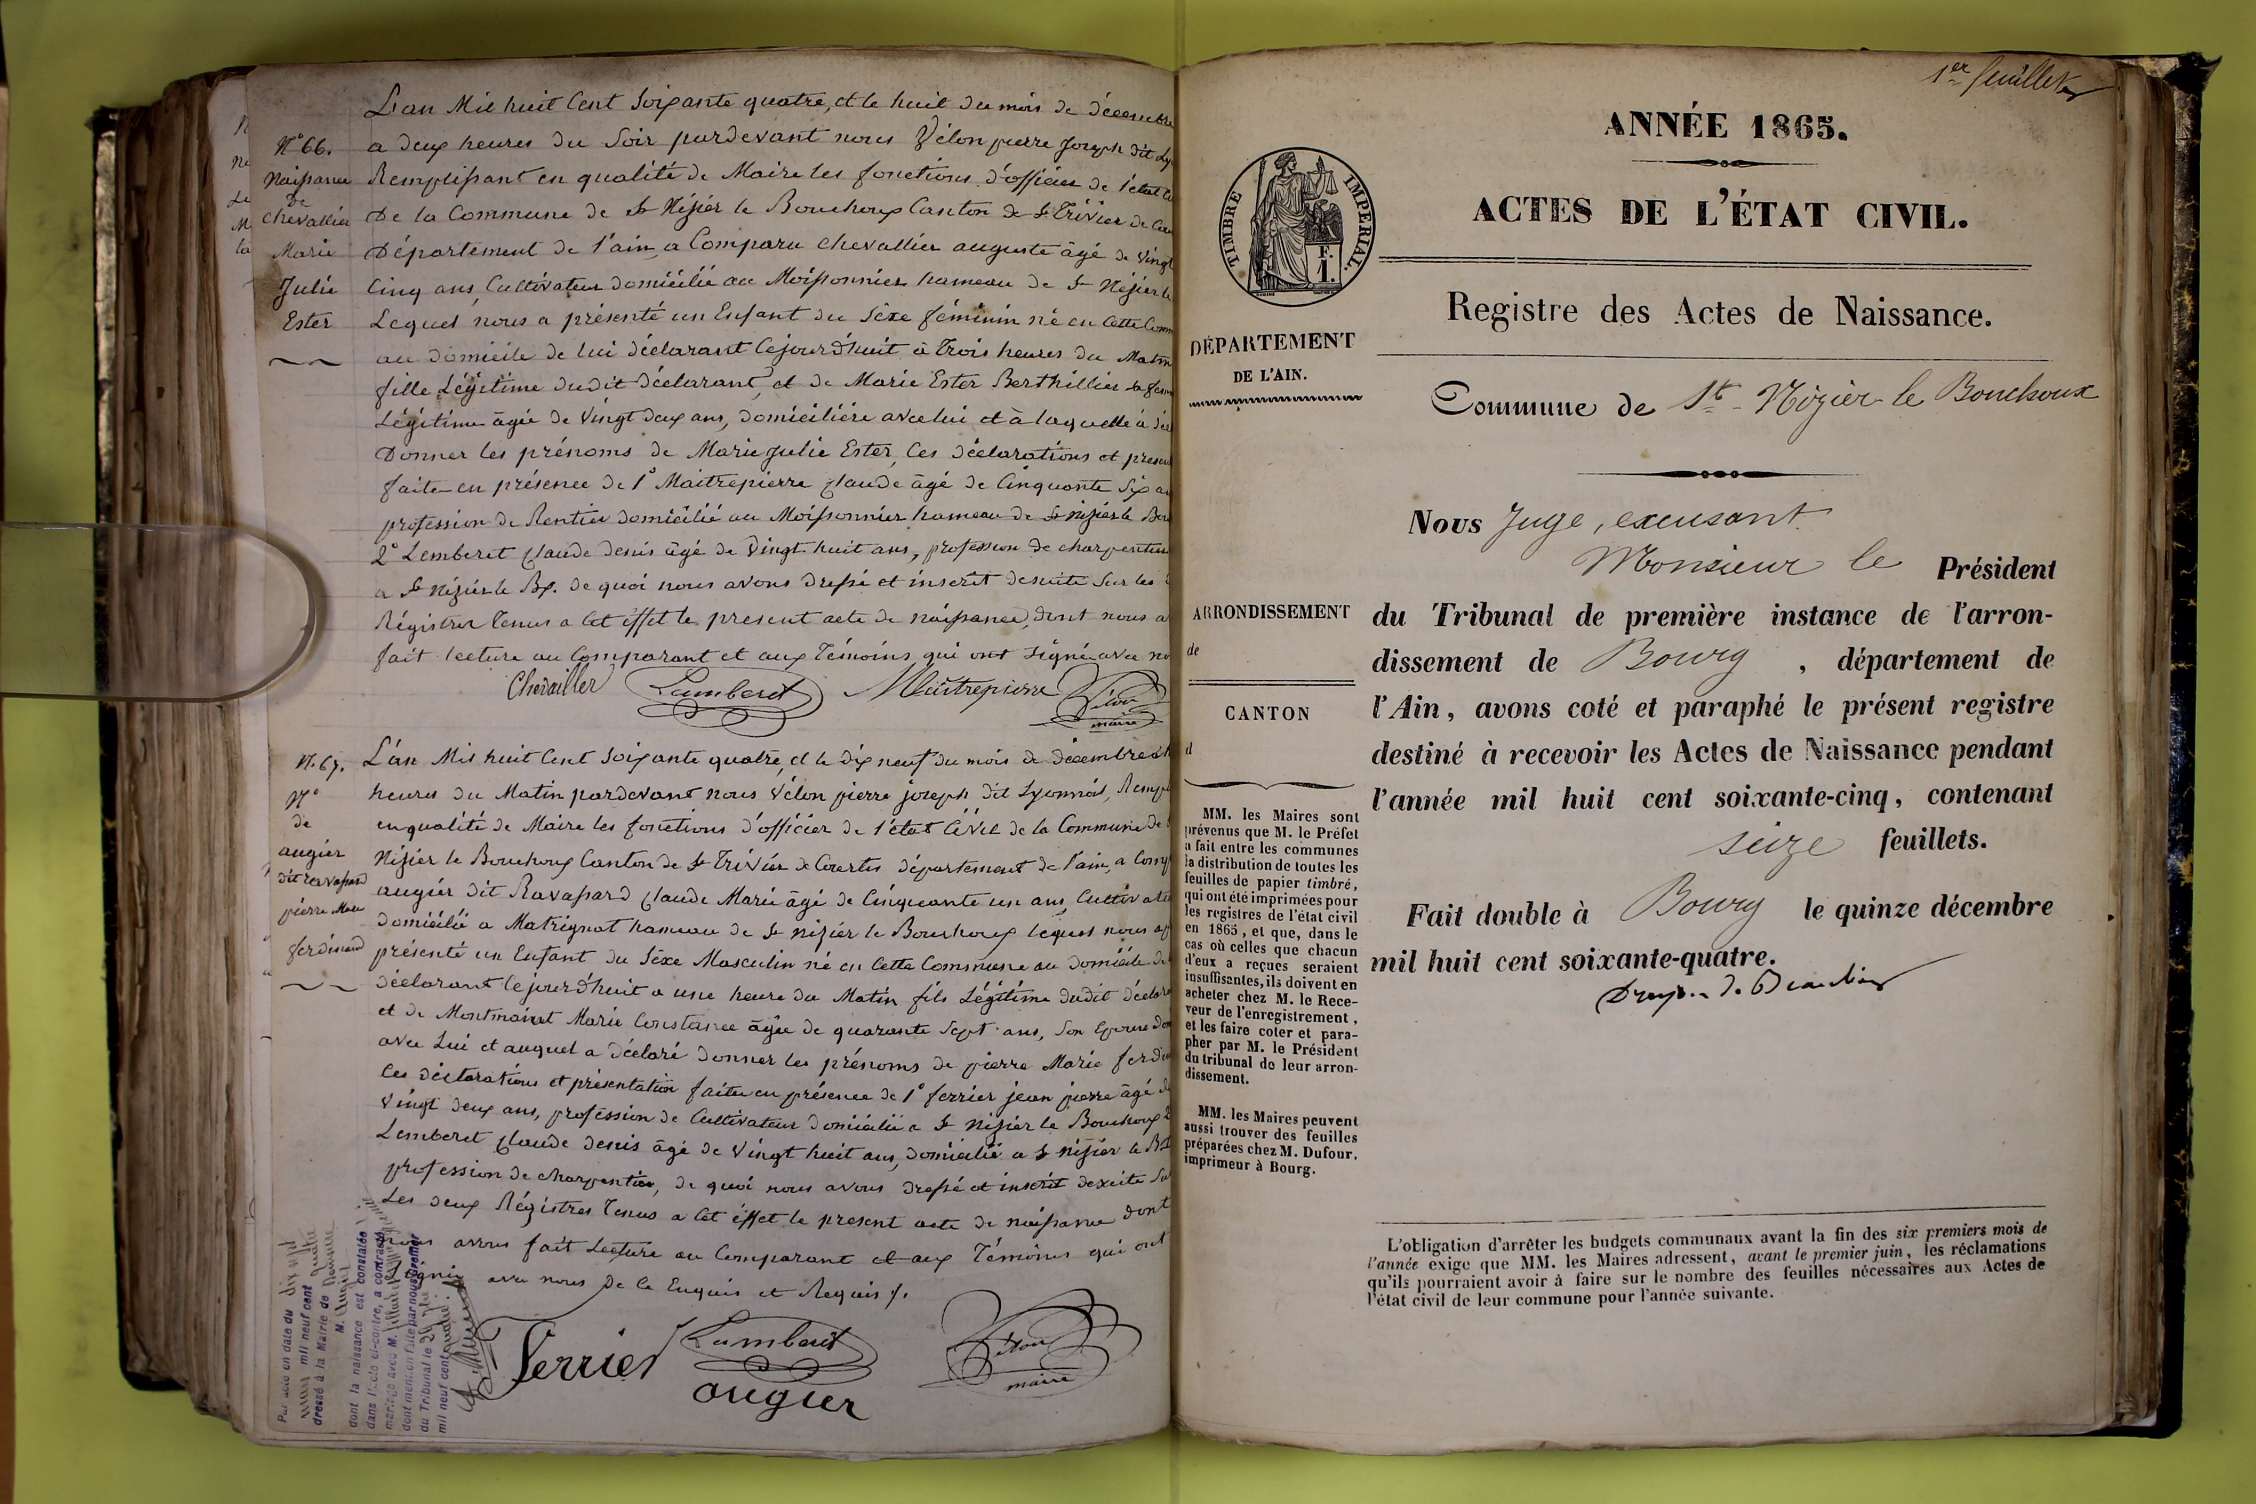 L'an Mil huit Cent Soixante quatre, et le huit du mois de décembre
a deux heures du Soir pardevant nous Vélon pierre Joseph dit Ly
Remplissant en qualité de Maire les fonctions d'officier de l'état
De la Commune de St Nizier le Bouchoux Canton de St Trivier de Cou
Département de l'ain, a Comparu chevallier auguste âgé de vingt
Cinq ans, Cultivateur domicilié au Moissonnier hameau de St Nizier le
Lequel nous a présenté un Enfant du Sèxe féminin né en Cette Comm
au domicile de lui déclarant Cejourd'huit à Trois heures du Matin
fille Légitime dudit déclarant, et de Marie Ester Berthillier sa fem
Légitime âgée de vingt deux ans, domicilière avec lui et à laquelle a
Donner les prénoms de Marie Julie Ester, Ces déclarations et présen
faite en présence de 1° Maitrepierre Claude âgé de Cinquante Six an
profession de Rentier domicilié au Moissonnier hameau de St nizier le Bou
2° Lemberet Claude denis âgé de vingt huit ans, profession de charpentier
a St Nizier le Bx. de quoi nous avons dressé et inscrit desuite sur les
Régistres Tenus a Cet éffet le present acte de naissance, dont nous a
fait lecture au Comparant et aux Témoins qui ont signé avec no
Chevailler Lemberet Maitrepierre Vélon
maire
N° 66.
Naissance
De
Chevallier
Marie
Julie
Ester
L'an Mil huit Cent Soixante quatre, et le dix neuf du mois de décembre
heures du Matin pardevant nous Vélon pierre joseph dit Lyonnais, Rempl
en qualité de Maire les fonctions d'officier de l'état Civil de la Commune de
Nizier le Bouchoux Canton de St Trivier de Courtes département de l'ain, a Comp
augier dit Ravassard Claude Marie âgé de Cinquante un ans, Cultivate
domicilié a Matrignat hameau de St nizier le Bouchoux lequel nous a
présenté un Enfant du Sèxe Masculin né en Cette Commune au domicile de
déclarant Cejourd'huit a une heure du Matin fils Légitime dudit déclara
et de Montmainet Marie Constance âgée de quarante Sept ans, Son Epouse dom
avec Lui et auquel a déclaré donner les prénoms de pierre Marie ferdin
Ces déclarations et présentation faite en présence de 1° ferrier jean pierre âgé de
Vingt deux ans, profession de Cultivateur domicilié a St Nizier le Bouchoux 2
Lemberet Claude denis âgé de Vingt huit ans, domicilié a St nizier le Bx
profession de charpentier, de quoi nous avons dressé et inscrit desuite Su
Les deux Régistres Tenus a Cet éffet le present acte de naissance dont
nous avons fait Lecture au Comparant et aux Témoins qui ont
Signé avec nous De Ce Enquis et Requis /.
Ferrier Lemberet Vélon
augier maire
N. 67.
Nce
de
augier
dit ravassard
pierre Marie
ferdinand
Par acte en date du dix
mil neuf cent quatre
dressé à la Mairie de
M. Augier
dont la naissance est constatée
dans l'acte ci-contre, a contracté
mariage avec M.
dont mention faite par nous greffier
du Tribunal le
mil neuf cent quatre.
1er feuillet
ANNÉE 1865.
ACTES DE L'ÉTAT CIVIL.
Registre des Actes de Naissance.
Commune de St-Nizier-le Bouchoux
Nous Juge, excusant
Monsieur le Président
du Tribunal de première instance de l'arron-
dissement de Bourg, département de
l'Ain, avons coté et paraphé le présent registre
destiné à recevoir les Actes de Naissance pendant
l'année mil huit cent soixante-cinq, contenant
seize feuillets.
Fait double à Bourg le quinze décembre
mil huit cent soixante-quatre.
L'obligation d'arrêter les budgets communaux avant la fin des six premiers mois de
l'année exige que MM. les Maires adressent, avant le premier juin, les réclamations
qu'ils pourraient avoir à faire sur le nombre des feuilles nécessaires aux Actes de
l'état civil de leur commune pour l'année suivante.
TIMBRE IMPERIAL.
F.
1.
DÉPARTEMENT
DE L'AIN.
ARRONDISSEMENT
de
CANTON
d
MM. les Maires sont
prévenus que M. le Préfet
a fait entre les communes
la distribution de toutes les
feuilles de papier timbré,
qui ont été imprimées pour
les registres de l'état civil
en 1865, et que, dans le
cas où celles que chacun
d'eux a reçues seraient
insuffisantes, ils doivent en
acheter chez M. le Rece-
veur de l'enregistrement,
et les faire coter et para-
pher par M. le Président
du tribunal de leur arron-
dissement.
MM. les Maires peuvent
aussi trouver des feuilles
préparées chez M. Dufour,
imprimeur à Bourg.